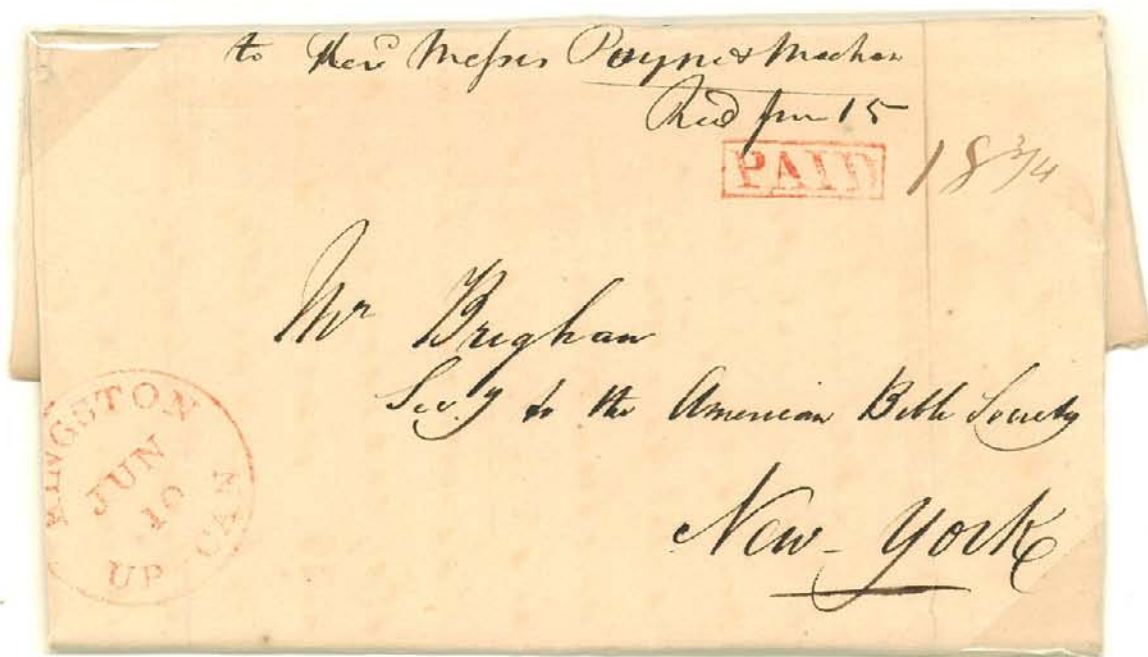 to Rev<sup>d</sup> Messrs Payne & Meehan
Rec'd Jun 15
PAID 18 3/4
Mr Brigham
Secy to the American Bible Society
New-York
KINGSTON
JUN
10
UP CAN